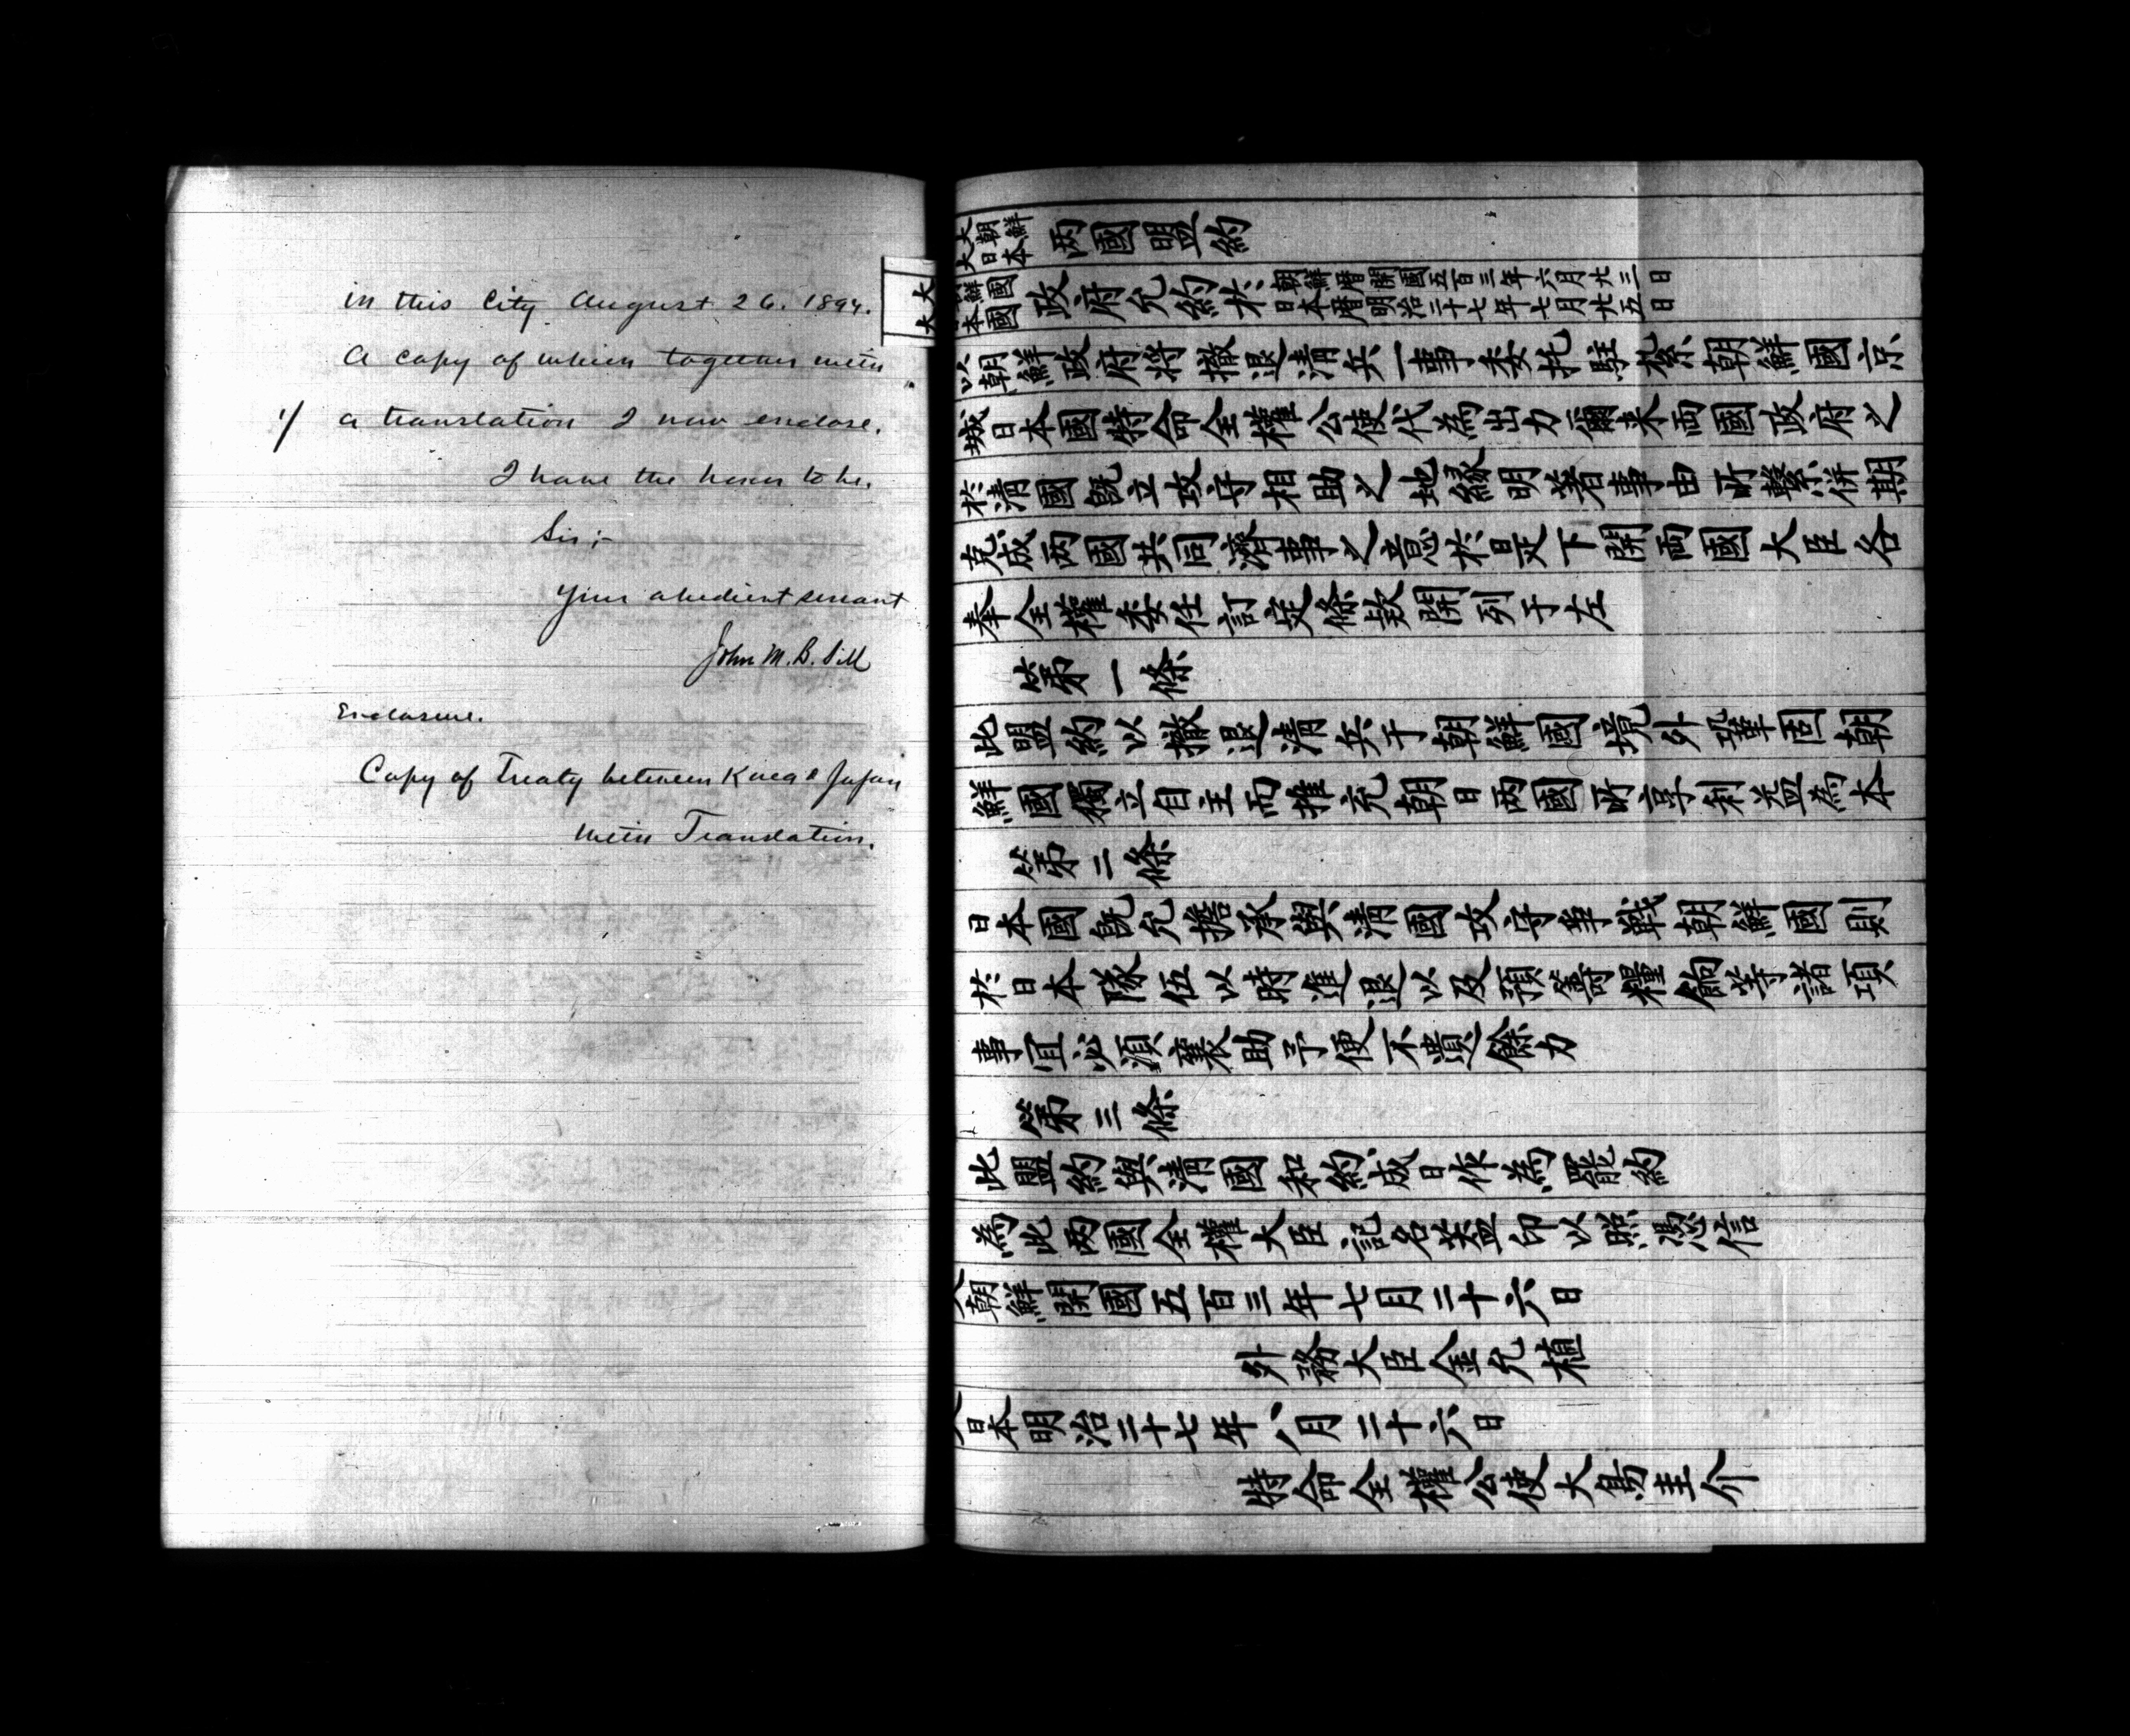 in this City August 26. 1894.
A copy of which together with
1/ a translation I now enclose.
I have the honor to be,
Sir;-
Your obedient servant
John M. B. Sill
Enclosure.
Copy of Treaty between Korea & Japan
with Translation.
大朝鮮
大日本
兩國盟約
大朝鮮國
大日本國
政府允約於
朝鮮曆開國五百三年六月廿三日
日本曆明治二十七年七月廿五日
以朝鮮政府將撤退清兵一事委托駐紮朝鮮國京
城日本國特命全權公使代為出力爾來兩國政府之
於清國既立攻守相助之地緣明著事由所繫併期
克成兩國共同濟事之意於是下開兩國大臣各
奉全權委任訂定條款開列于左
第一條
此盟約以撤退清兵于朝鮮國境外鞏固朝
鮮國獨立自主而推充朝日兩國所享利益為本
第二條
日本國既允擔承與清國攻守爭戰朝鮮國則
於日本隊伍以時進退以及預籌糧餉等諸項
事宜必須襄助予便不遺餘力
第三條
此盟約與清國和約成日作為罷約
為此兩國全權大臣記名蓋印以照憑信
大朝鮮開國五百三年七月二十六日
外務大臣金允植
大日本明治二十七年八月二十六日
特命全權公使大鳥圭介